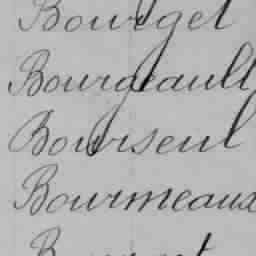 Bourget
Bourgeault
Bourseul
Bourmeaux